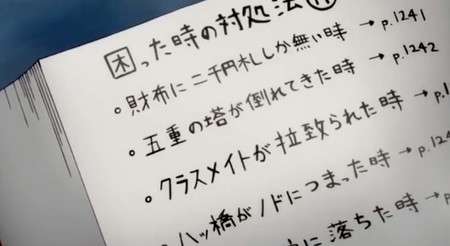 困った時の対処法
財布に二千円札しか無い時 → p.1241
五重の塔が倒れてきた時 → p.1242
クラスメイトが拉致られた時 → p.1
八ッ橋がノドにつまった時 → p.124
に落ちた時 →